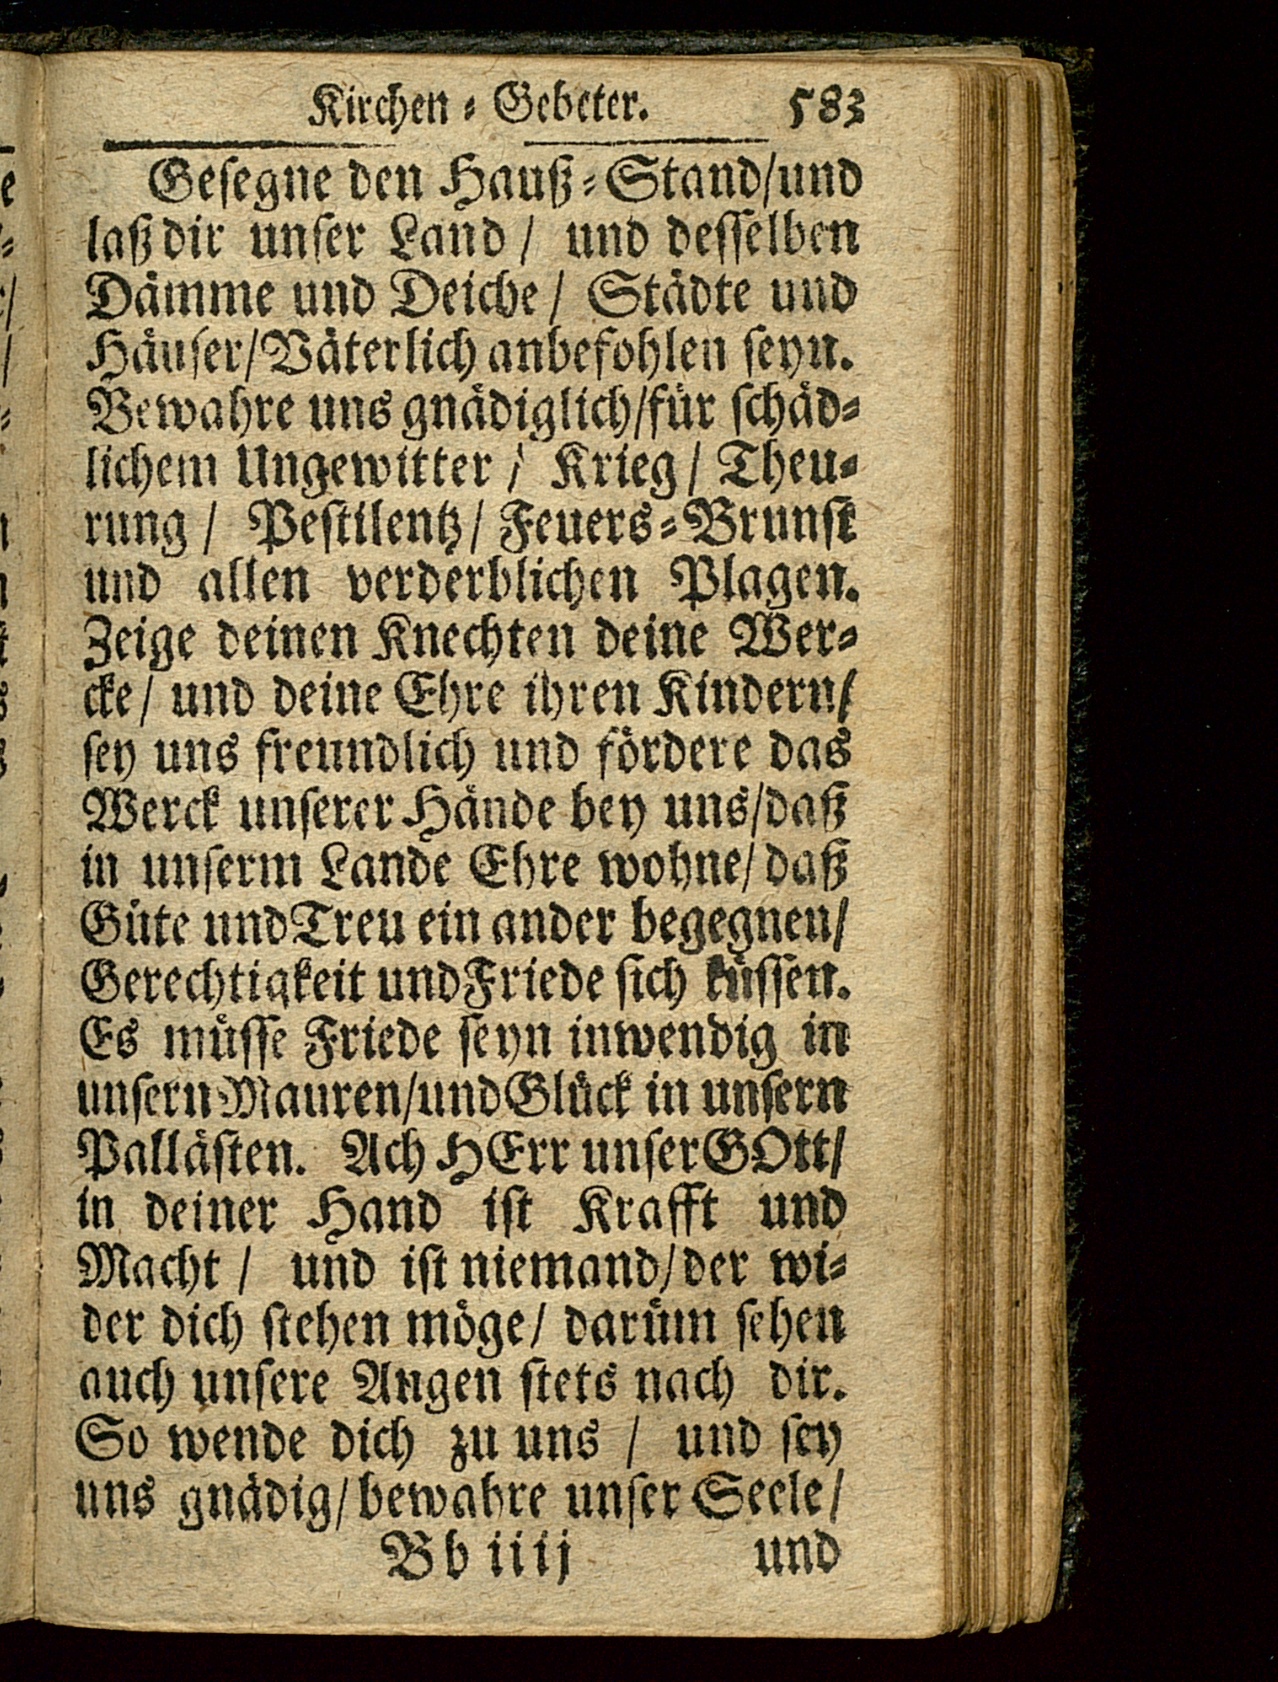 Kirchen-Gebeter. 583
Gesegne den Hauß-Stand/und
laß dir unser Land / und desselben
Dämme und Deiche / Städte und
Häuser/Väterlich anbefohlen seyn.
Bewahre uns gnädiglich/für schäd-
lichem Ungewitter / Krieg / Theu-
rung / Pestilentz / Feuers-Brunst
und allen verderblichen Plagen.
Zeige deinen Knechten deine Wer-
cke / und deine Ehre ihren Kindern/
sey uns freundlich und fördere das
Werck unserer Hände bey uns/daß
in unserm Lande Ehre wohne/daß
Güte und Treu ein ander begegnen/
Gerechtigkeit und Friede sich küssen.
Es müsse Friede seyn inwendig in
unsern Mauren/und Glück in unsern
Pallästen. Ach HErr unser GOtt/
in deiner Hand ist Krafft und
Macht / und ist niemand/der wi-
der dich stehen möge / darüm sehen
auch unsere Augen stets nach dir.
So wende dich zu uns / und sey
uns gnädig/bewahre unser Seele/
Bb iiij und